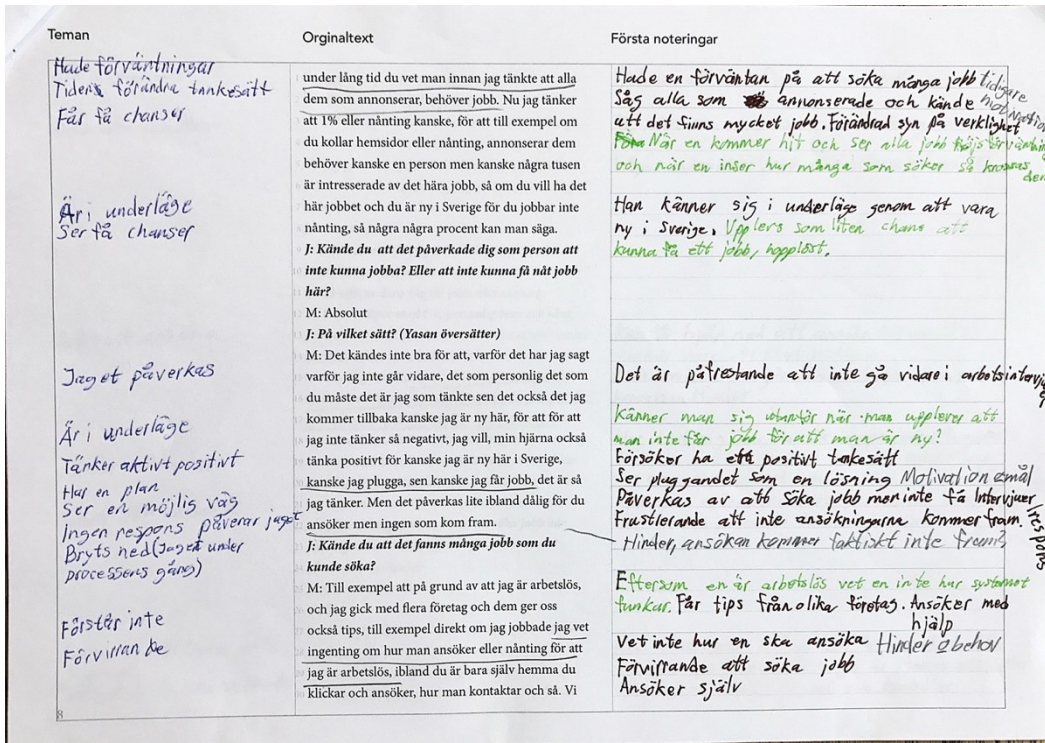 Teman
Hade förväntningar
Tiden förändra tankesätt
Får få chanser
Är i underläge
Ser få chanser
Jaget påverkas
Är i underläge
Tänker aktivt positivt
Har en plan
Ser en möjlig väg
Ingen respons påverar jaget
Bryts ned (Jaget under
processens gång)
Förstår inte
Förvirrande
8
Orginaltext
under lång tid du vet man innan jag tänkte att alla
dem som annonserar, behöver jobb. Nu jag tänker
att 1% eller nånting kanske, för att till exempel om
du kollar hemsidor eller nånting, annonserar dem
behöver kanske en person men kanske några tusen
är intresserade av det hära jobb, så om du vill ha det
här jobbet och du är ny i Sverige för du jobbar inte
nånting, så några några procent kan man säga.
J: Kände du att det påverkade dig som person att
inte kunna jobba? Eller att inte kunna få nåt jobb
här?
M: Absolut
J: På vilket sätt? (Yasan översätter)
M: Det kändes inte bra för att, varför det har jag sagt
varför jag inte går vidare, det som personlig det som
du måste det är jag som tänkte sen det också det jag
kommer tillbaka kanske jag är ny här, för att för att
jag inte tänker så negativt, jag vill, min hjärna också
tänka positivt för kanske jag är ny här i Sverige,
kanske jag plugga, sen kanske jag får jobb, det är så
jag tänker. Men det påverkas lite ibland dålig för du
ansöker men ingen som kom fram.
J: Kände du att det fanns många jobb som du
kunde söka?
M: Till exempel att på grund av att jag är arbetslös,
och jag gick med flera företag och dem ger oss
också tips, till exempel direkt om jag jobbade jag vet
ingenting om hur man ansöker eller nånting för att
jag är arbetslös, ibland du är bara själv hemma du
klickar och ansöker, hur man kontaktar och så. Vi
Första noteringar
Hade en förväntan på att söka många jobb tidigare
Såg alla som annonserade och kände motivation
att det finns mycket jobb. Förändrad syn på verklighet
När en kommer hit och ser alla jobb höjs förväntning
och när en inser hur många som söker så krossas
den
Han känner sig i underläge genom att vara
ny i Sverige. Upplevs som liten chans att
kunna få ett jobb, hopplöst.
Det är påfrestande att inte gå vidare i arbetsintervjuer
Känner man sig utanför när man upplever att
man inte får jobb för att man är ny?
Försöker ha ett positivt tankesätt
Ser pluggandet som en lösning Motivation & mål
Påverkas av att söka jobb men inte få Intervjuer
/respons
Frustlerande att inte ansökningarna kommer fram.
Hinder, ansökan kommer faktiskt inte fram?
Eftersom en är arbetslös vet en inte hur systemet
funkar. Får tips från olika företag. Ansöker med
hjälp
Vet inte hur en ska ansöka Hinder & behov
Förvirrande att söka jobb
Ansöker själv